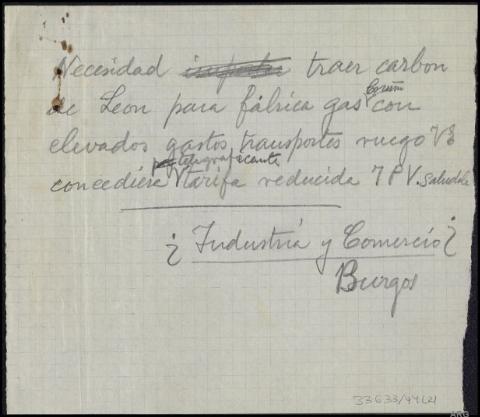 Necesidad traer carbon
de Leon para fábrica gas Coruña con
elevados gastos transportes ruego Vd
concediese telegraficamente tarifa reducida 7 P V. saludale
¿ Industria y Comercio ?
Burgos
33633/44(2)
ARG